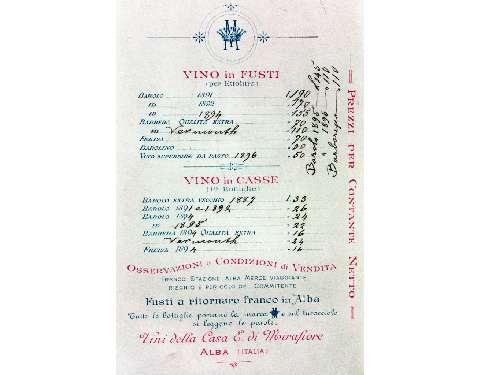 VINO in FUSTI
(per Ettolitro)
BAROLO 1891 L. 190
ID 1892 " 170
ID 1894 " 155
BARBERA QUALITÀ EXTRA " 70
" Vermouth " 110
FREISA " 70
BAROLINO
VINO SUPERIORE DA PASTO 1896 " 50
Barolo 1895 L 145
" 1896 " 110
Barbaresco " 110
VINO in CASSE
(12 Bottiglie)
BAROLO EXTRA VECCHIO 1887 L. 33
BAROLO 1891 e 1892 " 26
BAROLO 1894 " 24
ID 1895 " 22
BARBERA 1894 QUALITÀ EXTRA " 16
Vermouth " 24
FREISA 1894 " 16
PREZZI PER CONTANTE NETTO
OSSERVAZIONI e CONDIZIONI di VENDITA
FRANCO STAZIONE ALBA MERCE VIAGGIANTE
RISCHIO E PERICOLO DEL COMMITENTE
Fusti a ritornare franco in Alba
Tutte le bottiglie portano la marca e sul turacciolo
si leggono le parole:
Vini della Casa E. di Mirafiore
ALBA (ITALIA)